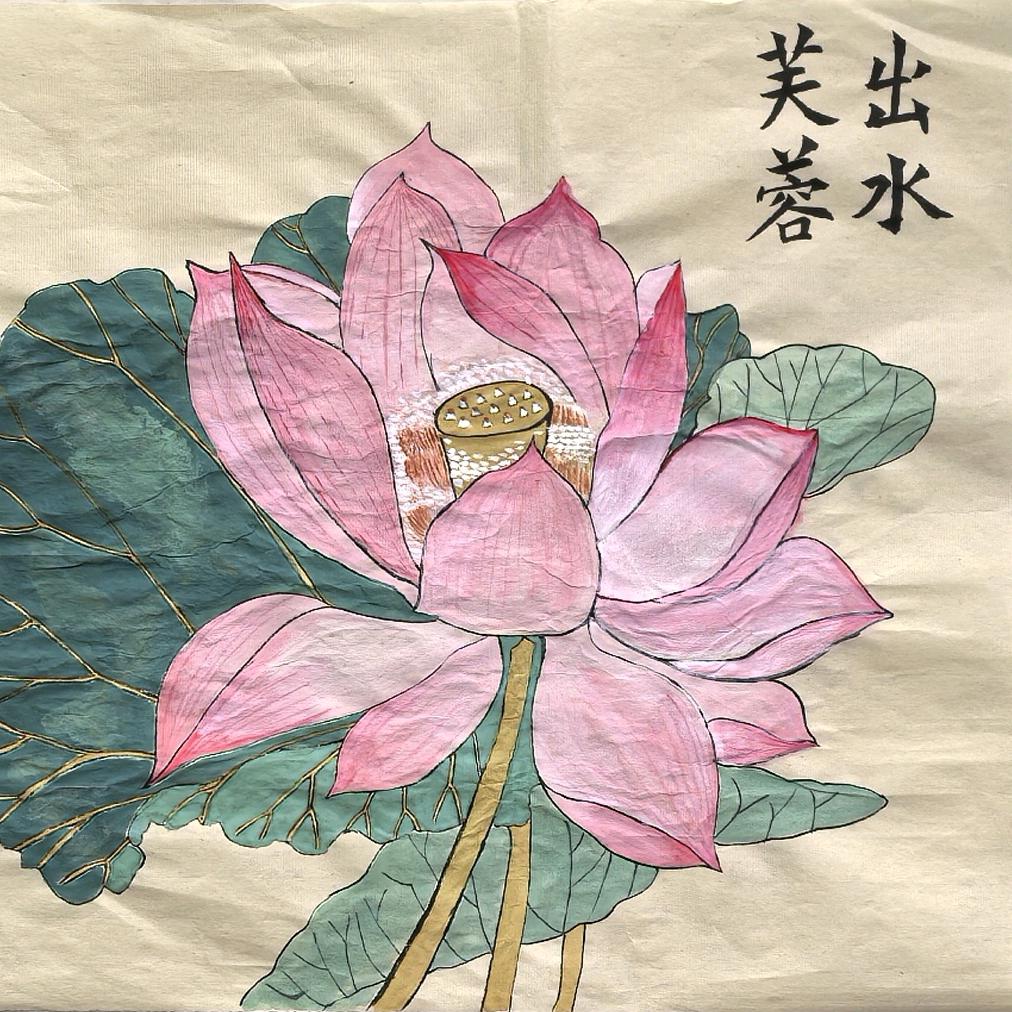 出水
芙蓉